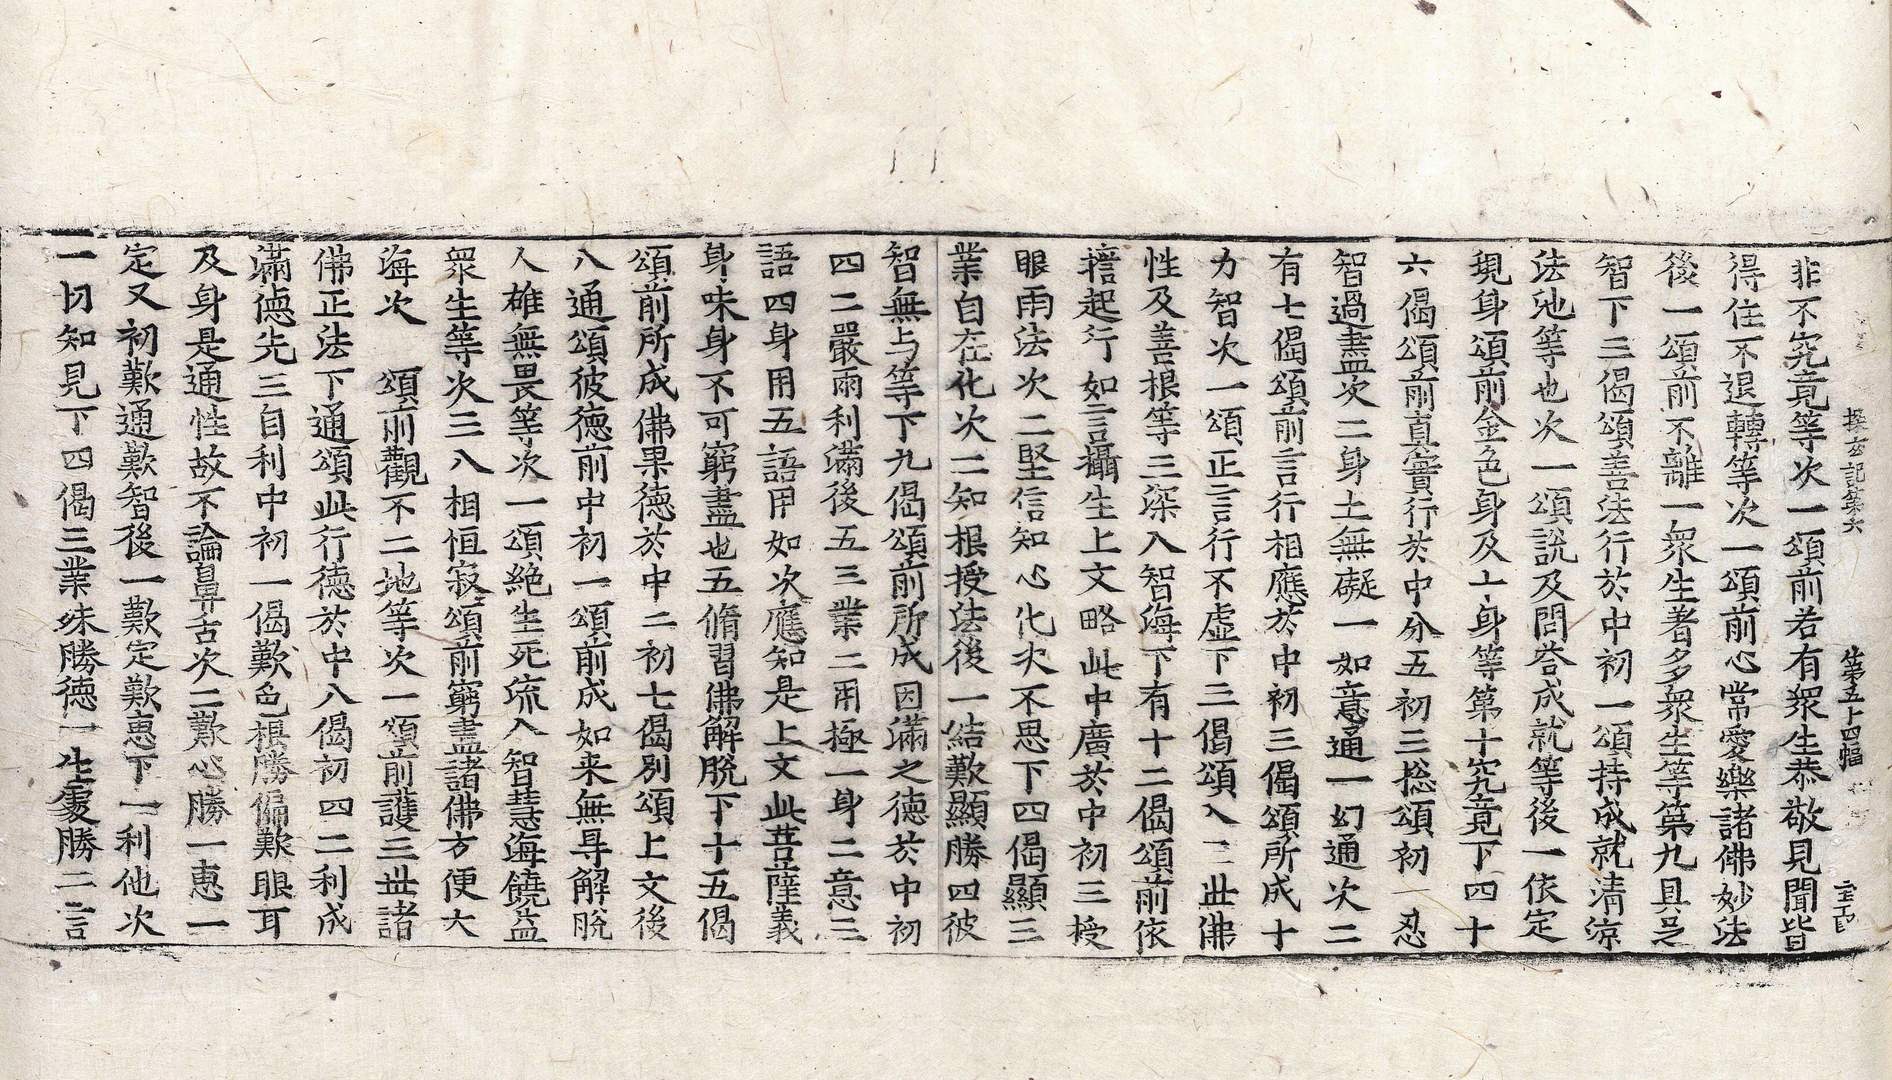 探玄記第六 第五十四幅
非不究竟等次一頌前若有衆生恭敬見聞皆
得住不退轉等次一頌前心常愛樂諸佛妙法
後一頌前不離一衆生著多衆生等第九具足
智下三偈頌善法行於中初一頌持成就清涼
法池等也次一頌説及問答成就等後一依定
現身頌前金色身及十身等第十究竟下四十
六偈頌前真實行於中分五初三捴頌初一忍
智過盡次二身土無礙一如意通一幻通次二
有七偈頌前言行相應於中初三偈頌所成十
力智次一頌正言行不虚下三偈頌入三世佛
性及善根等三深入智海下有十二偈頌前依
擔起行如言攝生上文略此中廣於中初三授
眼雨法次二堅信知心化次不思下四偈顯三
業自在化次二知根授法後一結歎顯勝四彼
智無与等下九偈頌前所成因滿之德於中初
四二嚴兩利滿後五三業二用極一身二意三
語四身用五語用如次應知是上文此菩薩義
身味身不可窮盡也五脩習佛解脱下十五偈
頌前所成佛果德於中二初七偈別頌上文後
八通頌彼德前中初一頌前成如来無㝵解脱
人雄無畏等次一頌絶生死流入智慧海饒益
衆生等次三八相恒寂頌前窮盡諸佛方便大
海次 頌前觀不二地等次一頌前護三世諸
佛正法下通頌此行德於中八偈初四二利成
滿德先三自利中初一偈歎色根勝偏歎眼耳
及身是通性故不論鼻舌次二歎心勝一惠一
定又初歎通歎智後一歎定歎惠下一利他次
一切知見下四偈三業殊勝德一生處勝二言